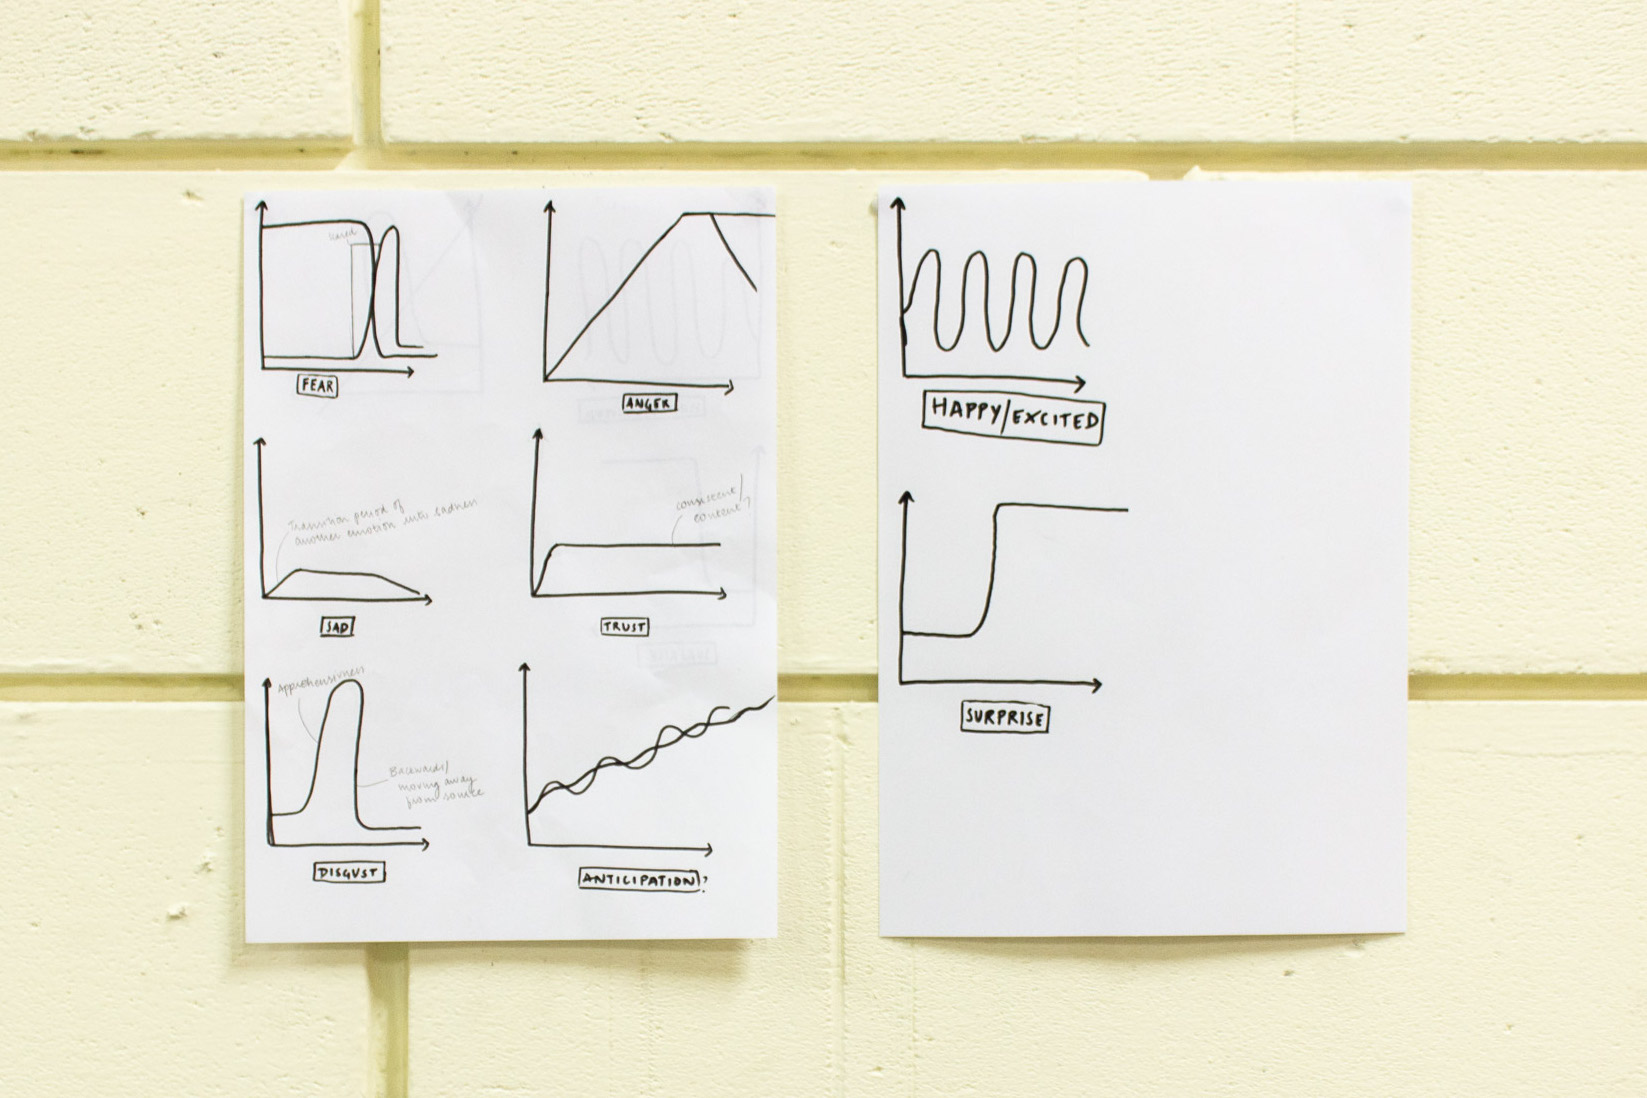 FEAR
ANGER
Transition period of
another emotion into sadness
consistent/
content?
SAD
TRUST
Apprehensiveness
Backwards/
moving away
from source
DISGUST
ANTICIPATION?
HAPPY/EXCITED
SURPRISE